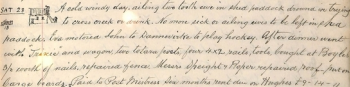 SAT 23 A cold windy day, ailing two tooth ewe in shed, paddock drowned in trying
to cross creek or drink. No more sick or ailing ewes to be left in shed
paddock. Eva motored John to Dannevirke to play hockey. After dinner went
with Francis and waggon two totara posts, four 4x2 rails, tools, bought at Boyle
3/- worth of nails, repaired fence. Messrs Speight & Pieper repaired roof, put on
barge boards. Paid to Post Mistress Six months rent due on Hughes £9-14-